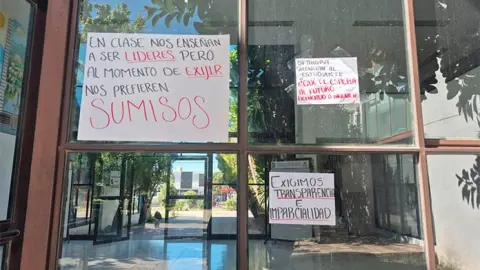 EN CLASE NOS ENSEÑAN
A SER LÍDERES PERO
AL MOMENTO DE EXIJIR
NOS PREFIEREN
SUMISOS
AL
ESTUDIANTE
FUTURO
EXIGIMOS
TRANSPARENCIA
E
IMPARCIALIDAD